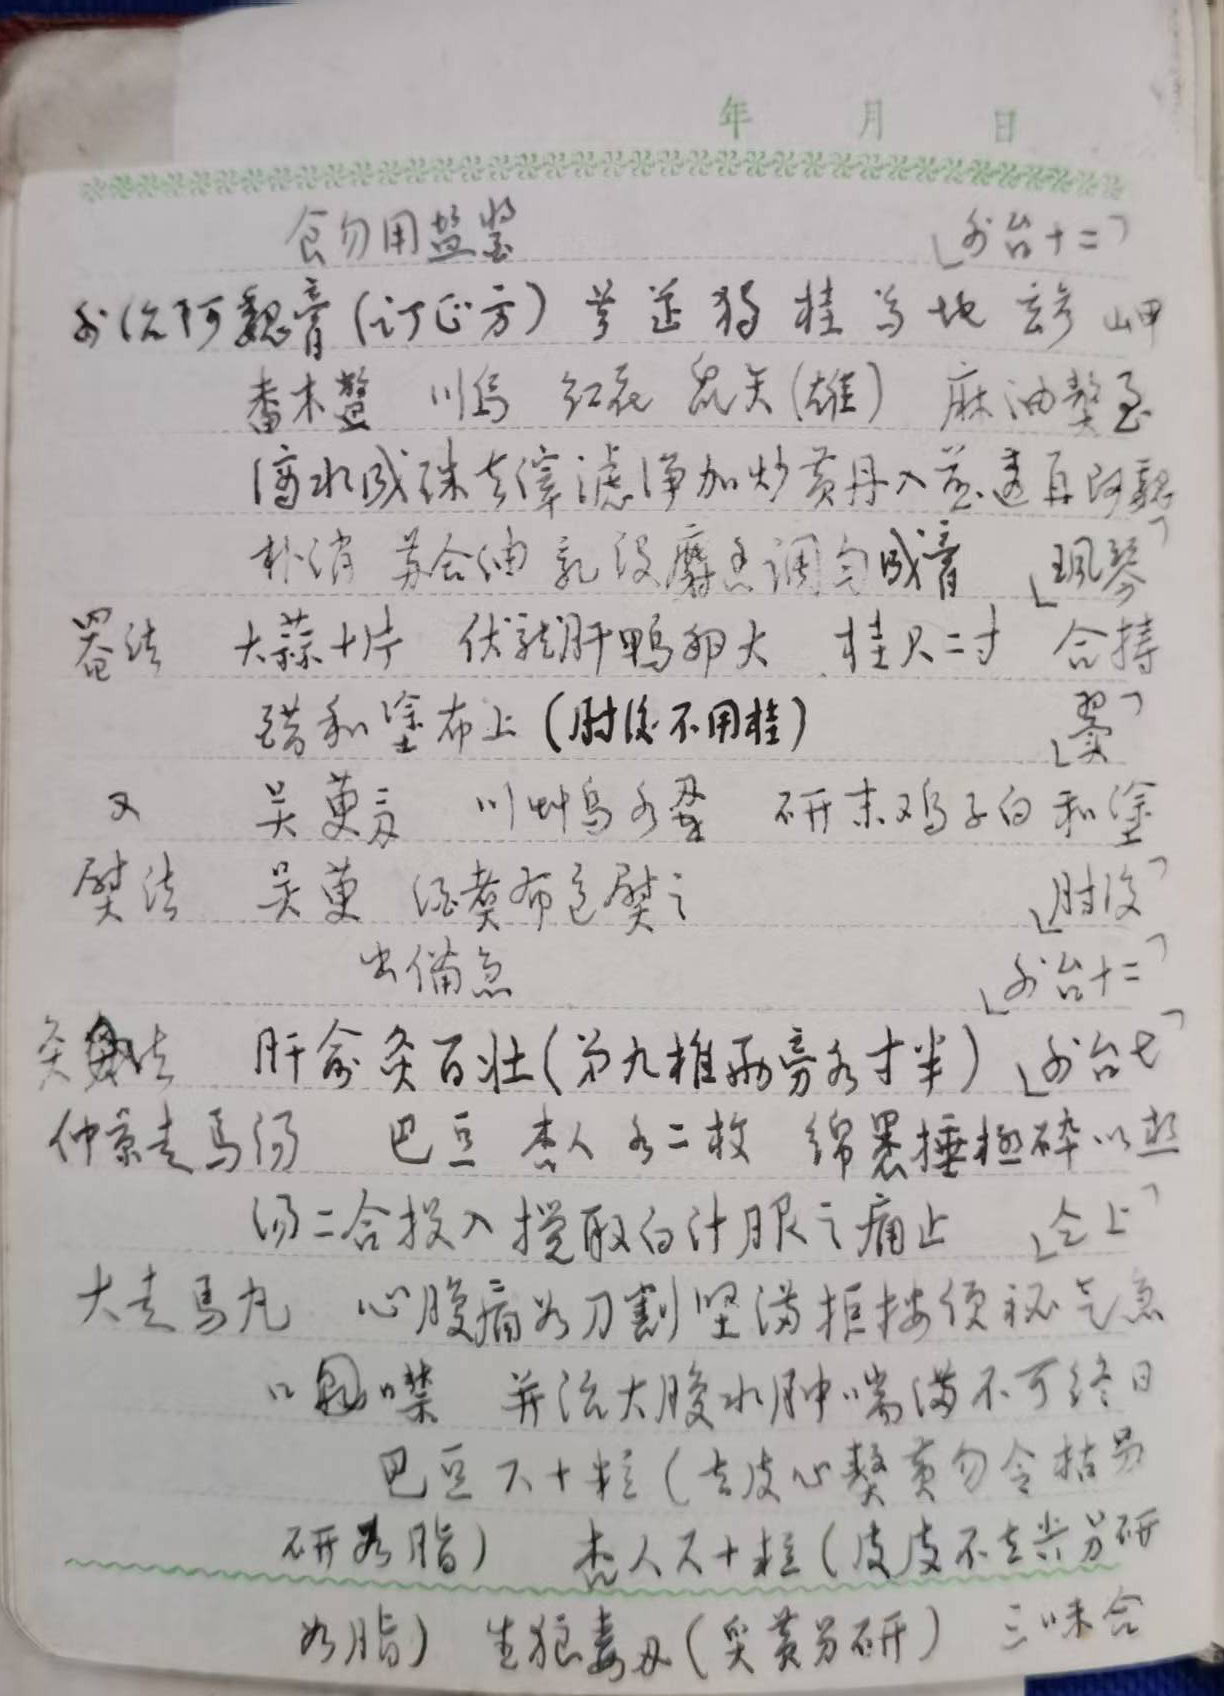 年 月 日
食勿用盐 「外台十二」
外治阿魏膏(订正方) 羌 独 桂 当 地 玄参 山甲
番木鳖 川乌 红花 鼠矢(雄) 麻油熬至
滴水成珠去滓滤净加炒黄丹入 真阿魏
朴消 苏合油 乳没麝香调匀成膏 「珮琴」
罨法 大蒜十片 伏龙肝鸭卵大 桂尺二寸 合持
醋和涂布上(肘后不用桂) 「翼」
又 吴萸 川艸乌各 研末鸡子白和涂
熨法 吴萸 酒煮布包熨之 「肘后」
出备急 「外台十二」
灸法 肝俞灸百壮(第九椎两旁各寸半) 「外台七」
仲景走马汤 巴豆 杏人各二枚 绵裹捶极碎以热
汤二合投入搅取白汁服之痛止 「仝上」
大走马丸 心腹痛如刀割坚满拒按便秘气急
口噤 并治大腹水肿喘满不可终日
巴豆六十粒(去皮心熬黄勿令枯另
研如脂) 杏人六十粒(皮皮不去炒另研
如脂) 生狼毒 (炙黄另研) 三味合